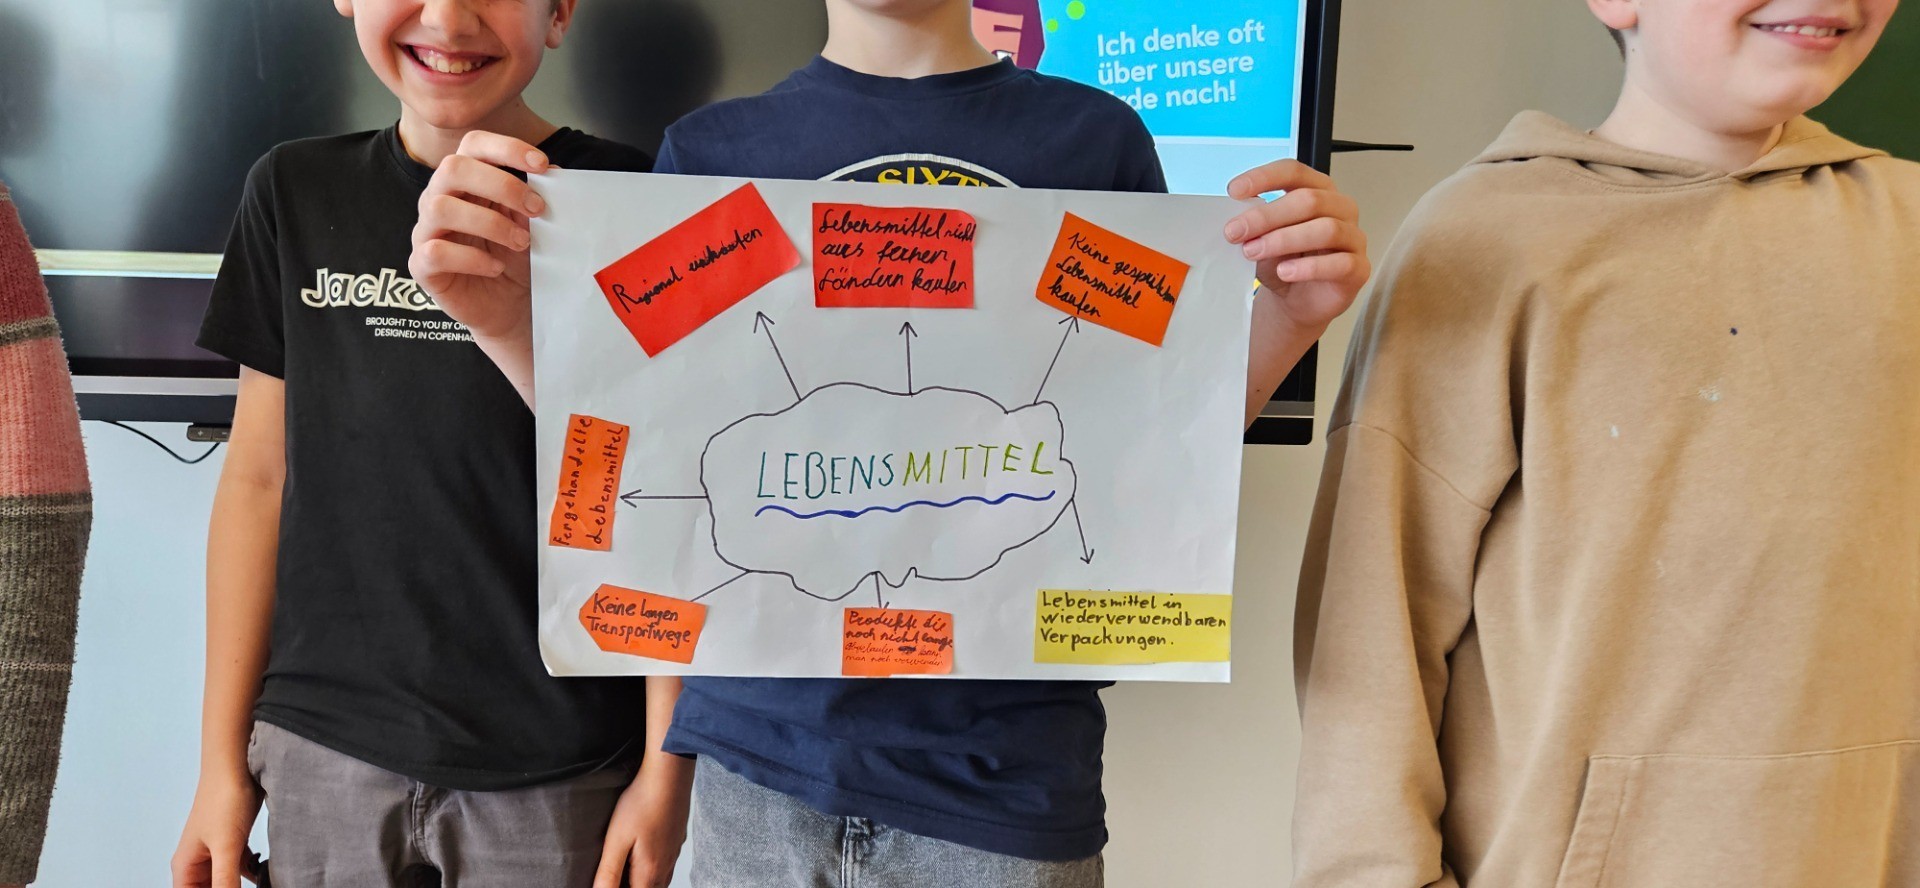 Ich denke oft
über unsere
rde nach!
SIXTY
Jack&
BROUGHT TO YOU BY OR
DESIGNED IN COPENHAG
Regional einkaufen
Lebensmittel nicht
aus fernen
Ländern kaufen
Keine gespritzten
Lebensmittel
kaufen
Fergehandelte
Lebensmittel
LEBENSMITTEL
Keine langen
Transportwege
Produkte die
noch nicht lange
abgelaufen kann
man noch verwenden
Lebensmittel in
wiederverwendbaren
Verpackungen.